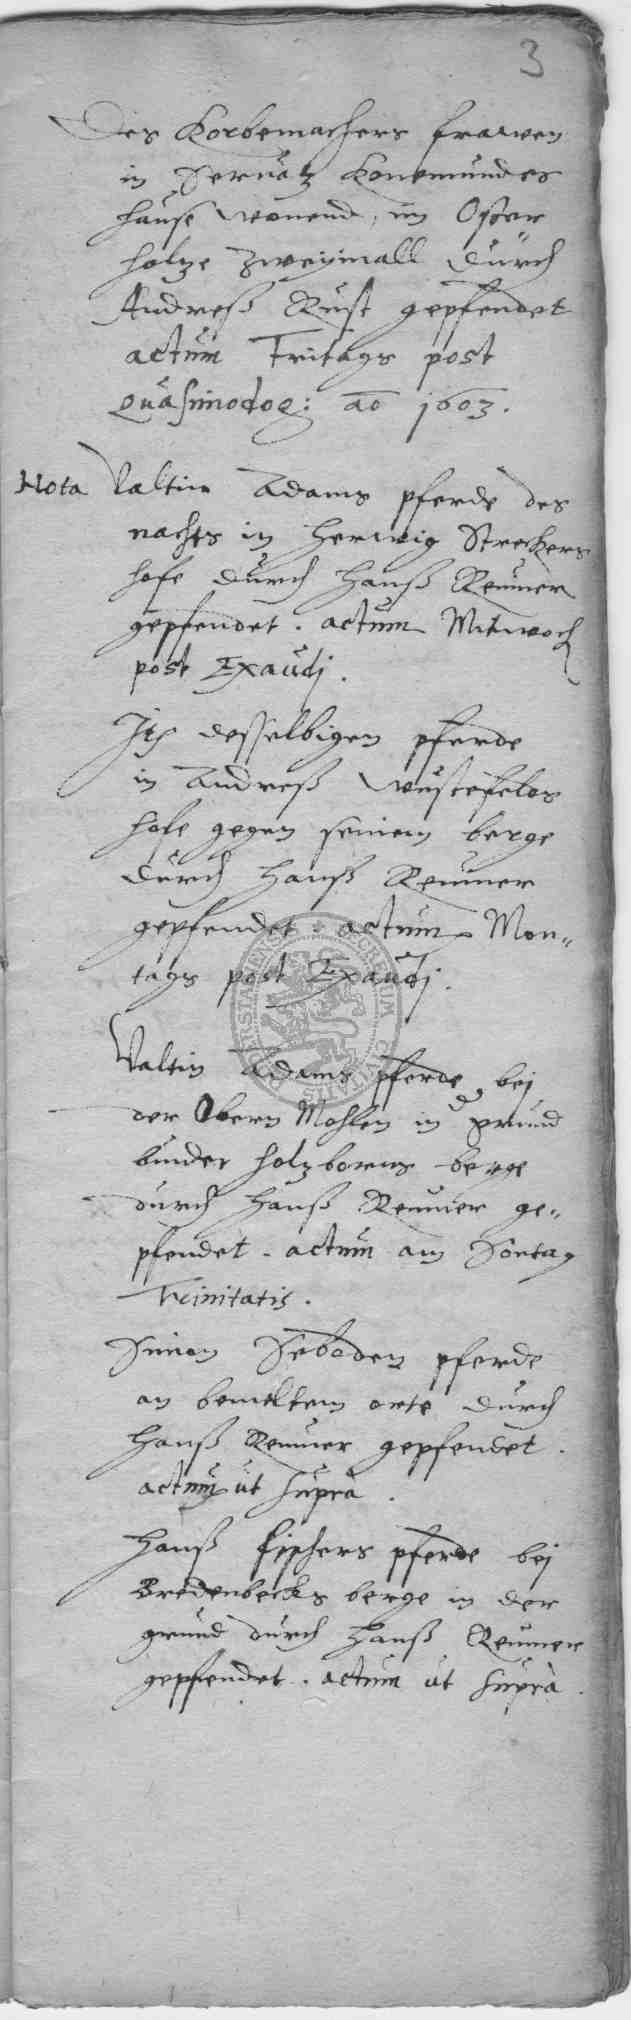 3
Des Korbemachers frawen
in Servatz Konemundes
hause wonend, im Oster
holtze zweymall durch
Andreß Rust gepfendet
actum Fritags post
Quasimodog: ao 1603.
Nota Valtin Adams pferde des
nachts in Herwig Streckers
hofe durch Hanß Reumer
gepfendet. actum Mitwoch
post Exaudj.
Its desselbigen pferde
in Andreß Wustefelds
hofe gegen seinem berge
durch Hanß Reumer
gepfendet. actum Mon„
tags post Exaudj.
Valtin Adams pferde bej
der Obern Mohlen in d grund
under Holtzborns berge
durch Hanß Reumer ge„
pfendet. actum am Sontag
Trinitatis.
Simon Seboden pferde
an bemeltem orte durch
Hanß Reumer gepfendet.
actum ut supra.
Hanß Fischers pferde bej
Bredenbecks berge in der
grund durch Hanß Reumer
gepfendet. actum ut supra.